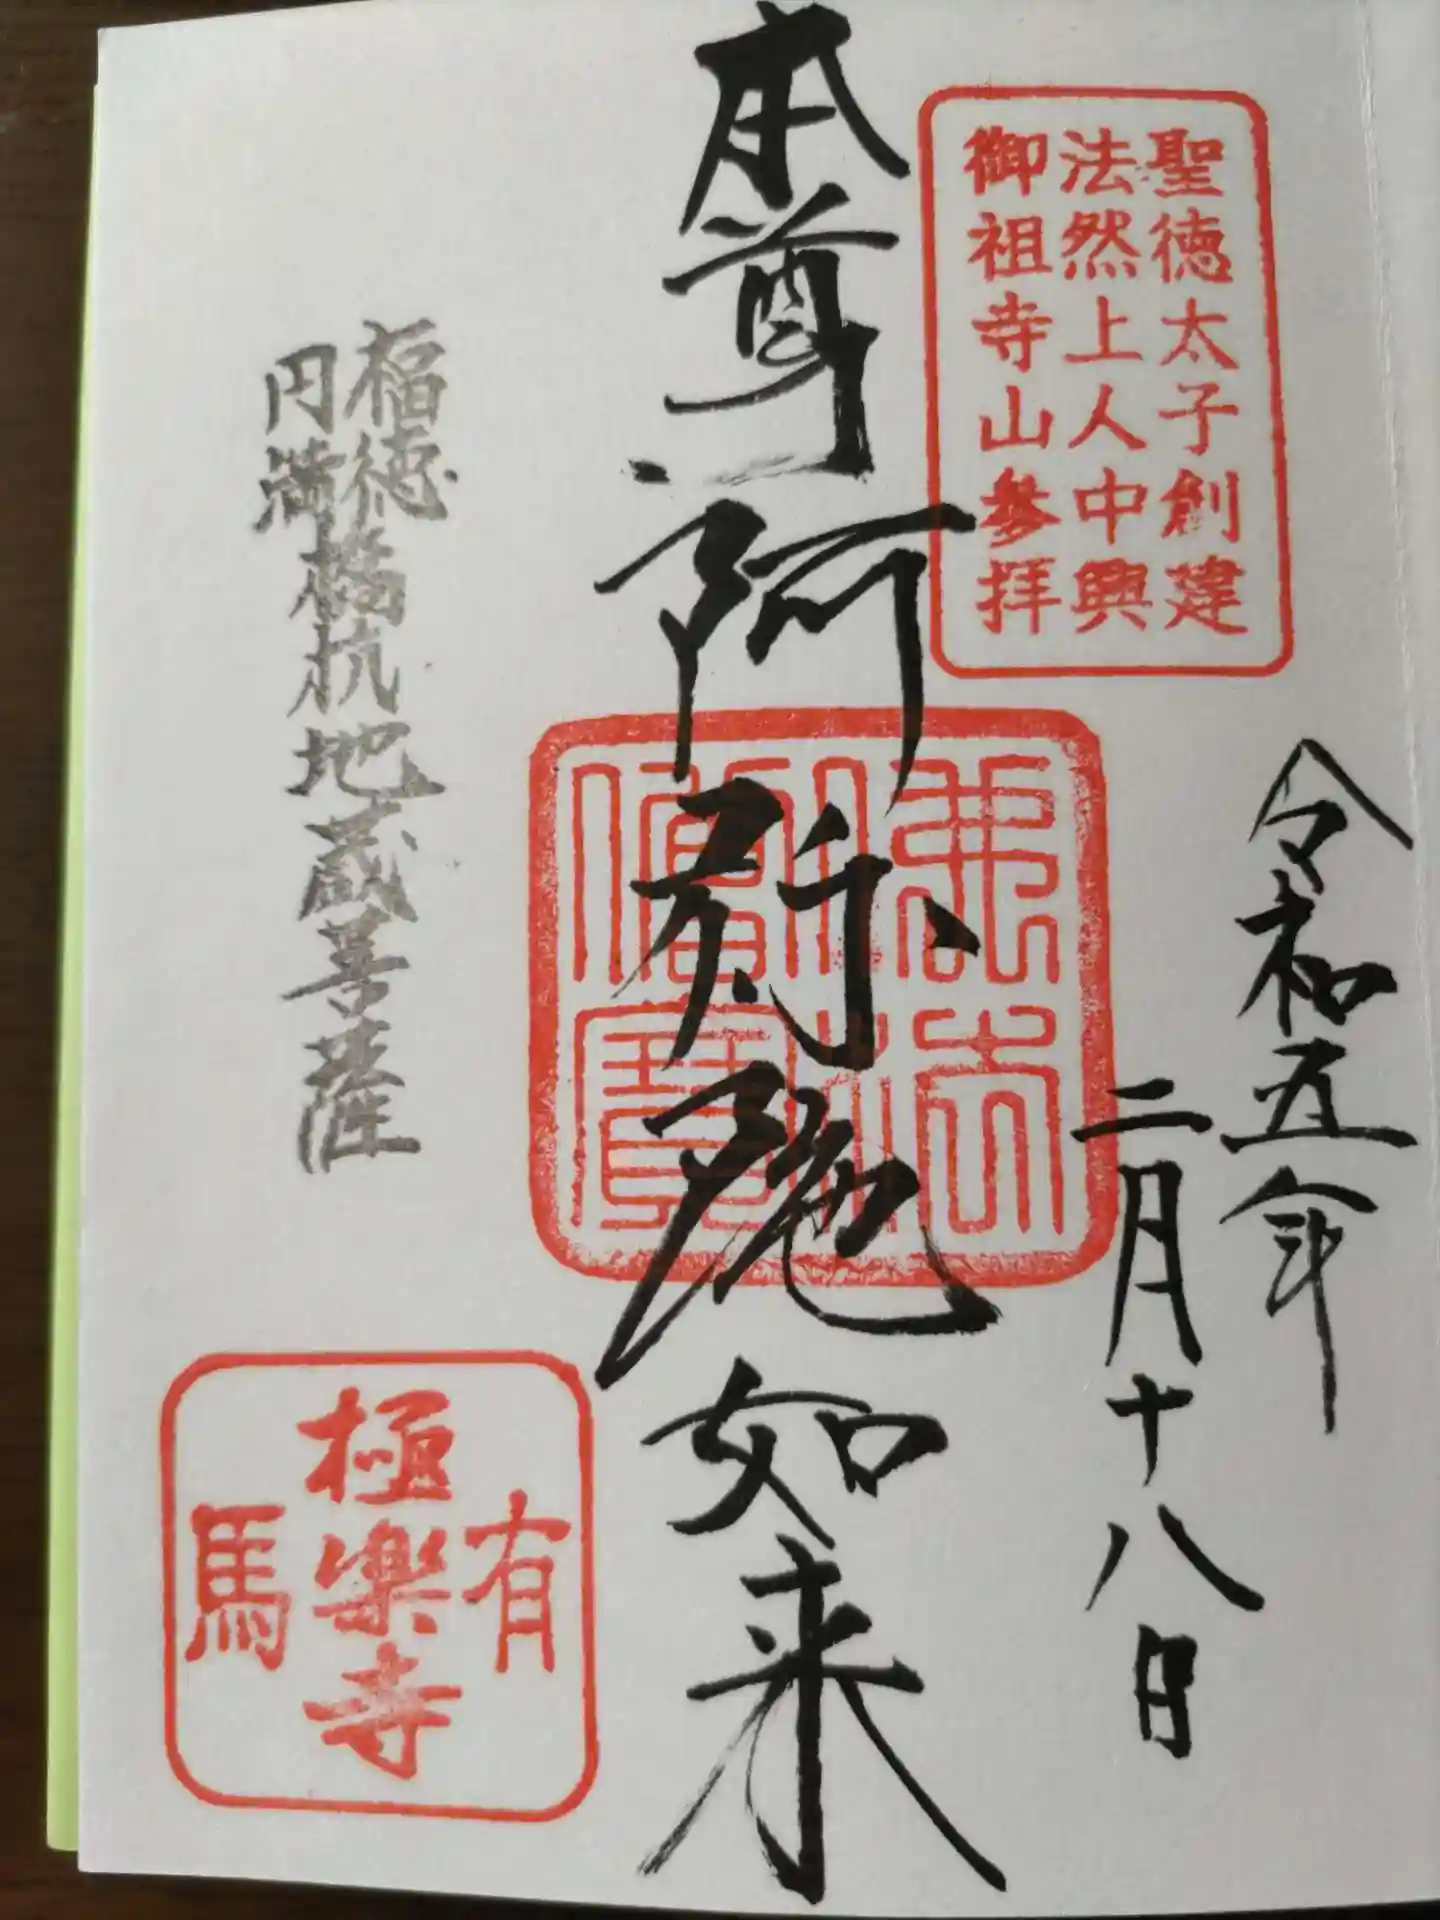 聖徳太子創建
法然上人中興
御祖寺山参拝
令和五年
二月十八日
本尊阿弥陀如来
佛法
僧寳
福徳
円満
橋杭地蔵菩薩
有馬
極楽寺